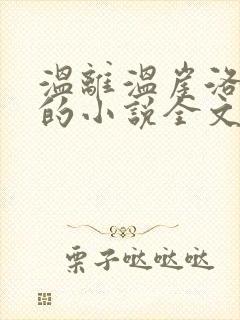 温離温崖洛
的小說全文
栗子哒哒哒